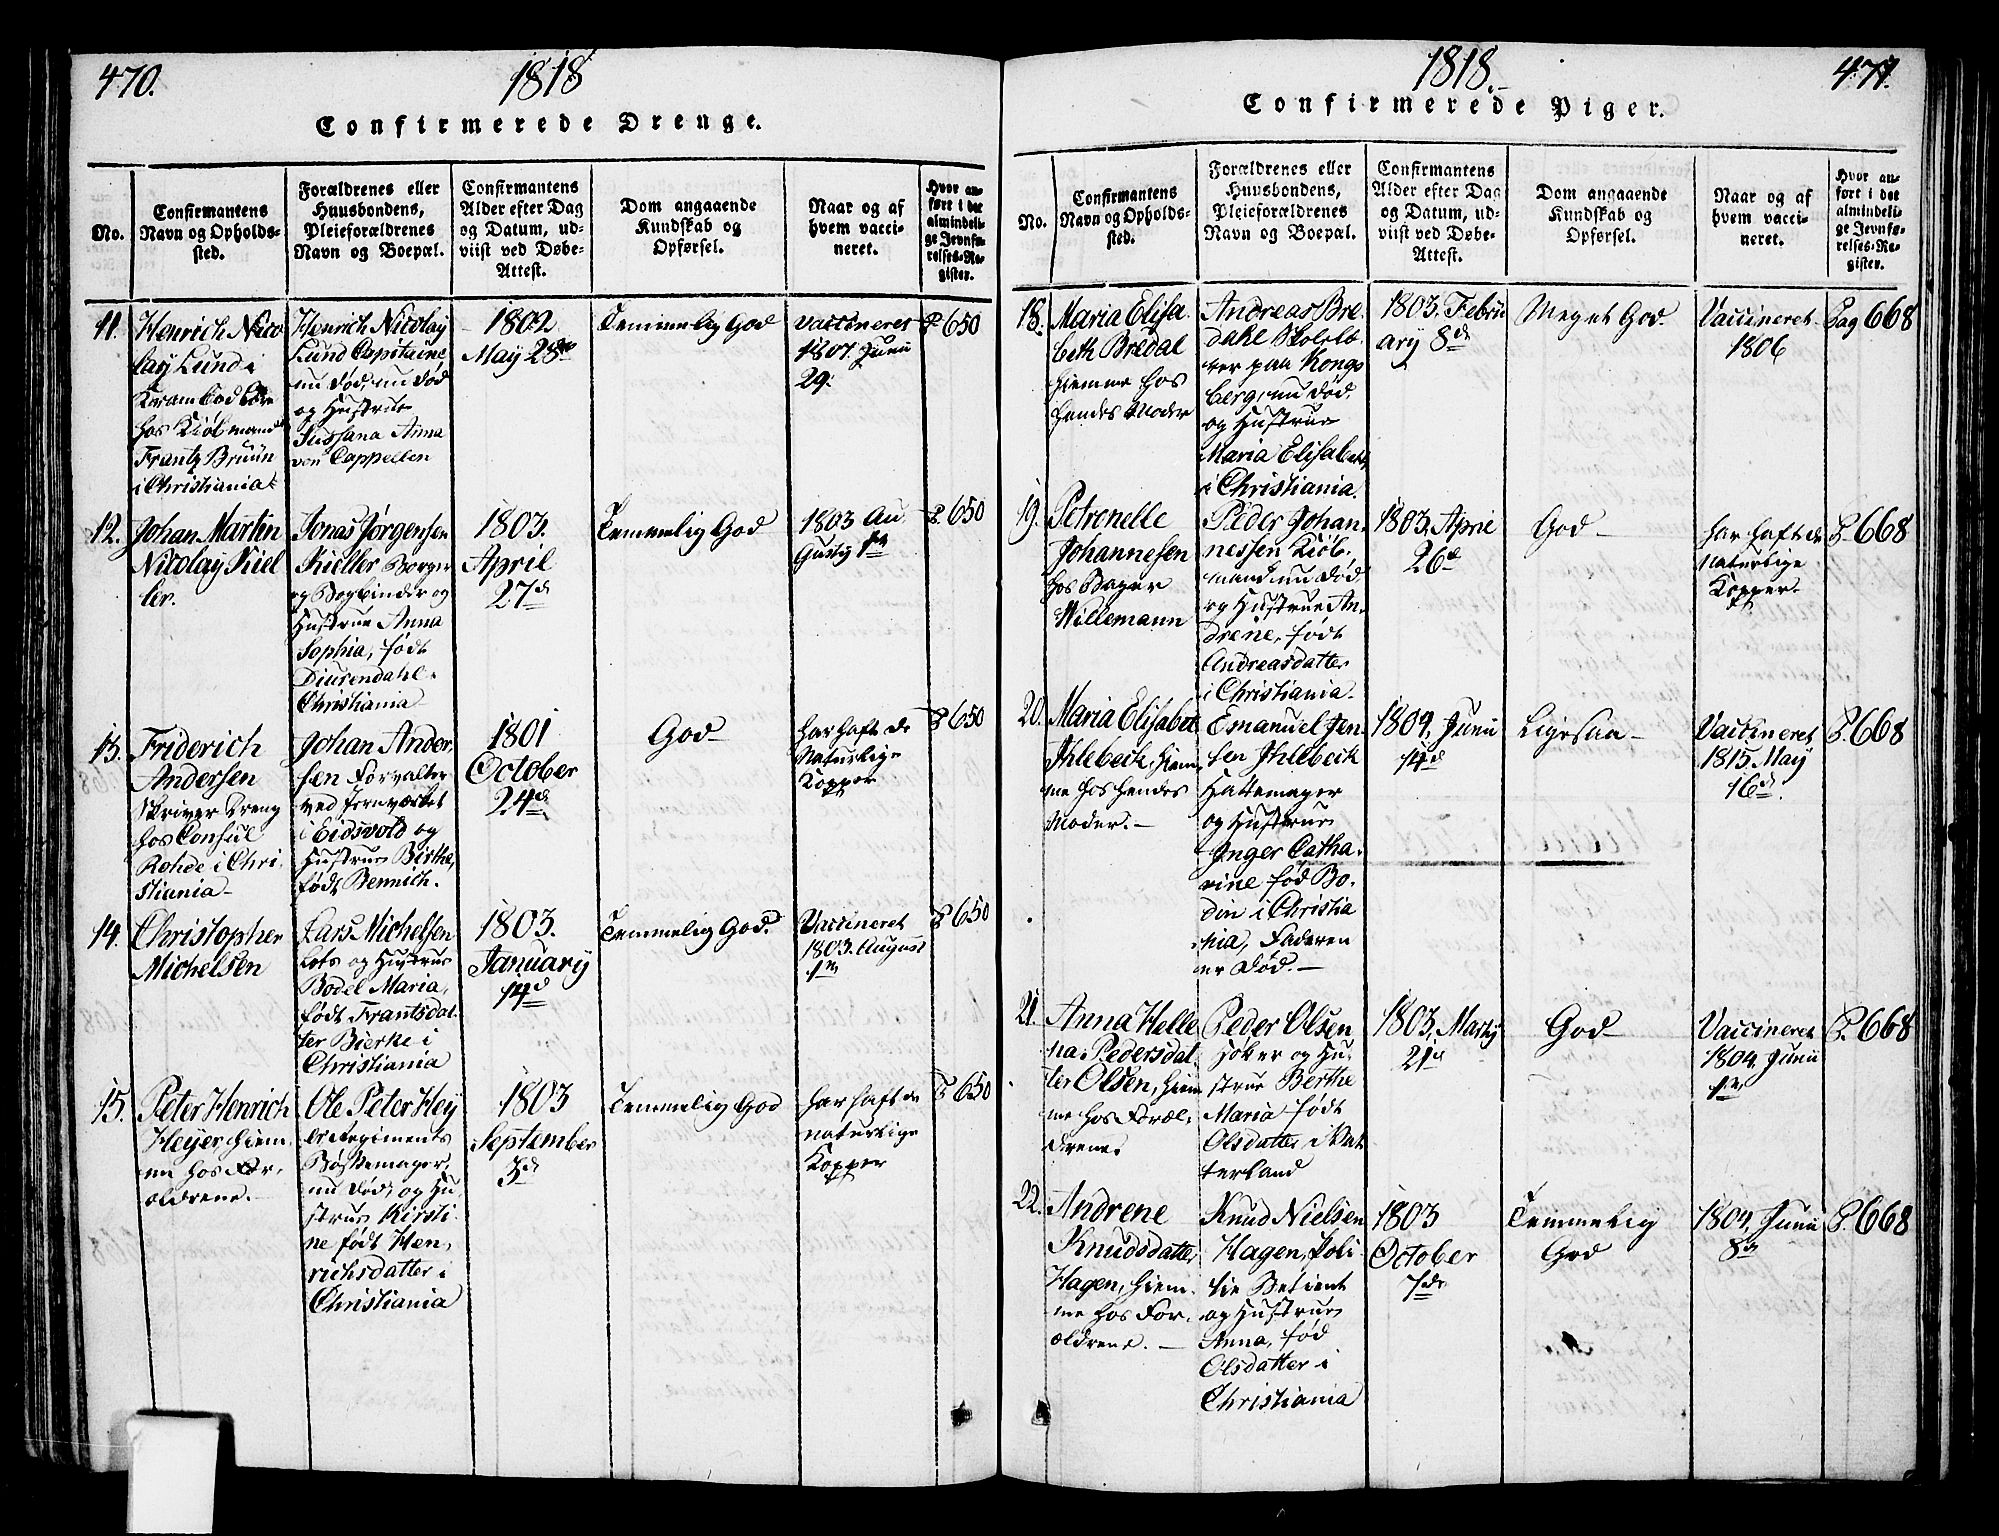 470.
1818
Confirmerede Drenge.
No.
Confirmantens
Navn og Opholds-
sted.
Forældrenes eller
Huusbondens,
Pleieforældrenes
Navn og Boepæl.
Confirmantens
Alder efter Dag
og Datum, ud-
viist ved Døbe-
Attest.
Dom angaaende
Kundskab og
Opførsel.
Naar og af
hvem vacci-
neret.
Hvor an-
ført i det
almindeli-
ge Jevnfø-
relses-Re-
gister.
11.
Henrich Nico
lay Lund i
Krambod lære
hos Kiøbmand
Frantz Bruun
i Christiania
Henrich Nicolay
Lund Capitaine
nu død
og Hustrue
Sussana Anna
von Cappellen
1802
May 28de
Temmelig God
vaccineret
1807. Junii
29.
P 650
12.
Johan Martin
Nicolay Kiel
ler.
Jonas Jørgensen
Kieller Borger
og Bogbinder og
Hustrue Anna
Sophia, født
Diurendahl
Christiania
1803.
April
27d
Temmelig God
1803 Au
gusty 1m
P. 650
13.
Friderich
Andersen
Skriver Dreng
hos Consul
Rohde i Chri-
stiania
Johan Ander
sen Forvalter
ved Jernværket
i Eidsvold og
Hustrue Birthe,
født Bennich.
1801
October
24d
God
har haft de
Naturlige
Kopper
P 650
14.
Christopher
Michelsen
Lars Michelsen
Lots og Hustrue
Bodel Maria,
født Frantsdat
ter Bierke i
Christiania
1803.
January
14d
Temmelig God.
Vaccineret
1803. August
1m
P 650
15.
Peter Henrich
Heyer, hiem
me hos For-
ældrene.
Ole Peter Hey
er Regiments
Bøssemager,
nu død, og Hu
strue Kirsti
ne født Hen
richsdatter i
Christiania
1803
September
3d
Temmelig God
har haft de
naturlige
Kopper
P 650
1818.
471.
Confirmerede Piger.
No.
Confirmantens
Navn og Opholds-
sted.
Forældrenes eller
Huusbondens,
Pleieforældrenes
Navn og Boepæl.
Confirmantens
Alder efter Dag
og Datum, ud-
viist ved Døbe-
Attest.
Dom angaaende
Kundskab og
Opførsel.
Naar og af
hvem vacci-
neret.
Hvor an-
ført i det
almindeli-
ge Jevnfø-
relses-Re-
gister.
18.
Maria Elisa
beth Bredal
hiemme hos
hendes Moder
Andreas Bre
dahl
paa Kongs
berg, nu død,
og Hustrue
Maria Elisabeth
i Christiania.
1803. Febru
ary 8d
Meget God.
Vaccineret
1806
Pag 668
19.
Petronelle
Johannesen
hos Bager
Willemann
Peder Johan-
nessen Kiøb-
mand nu død
og Hustrue An-
drine, født
Andreasdatter
i Christiania
1803, April
26d
God
har haft de
naturlige
Kopper.
P. 668
20.
Maria Elisabet
Ihlebeck, hiem
me hos hendes
Moder.
Emanuel Jen-
sen Ihlebeck
Hattemager
og Hustrue
Inger Catha-
rine, fød Bo-
din i Christia
nia, Faderen
er død.
1804, Junii
14d
Ligesaa
Vaccineret
1815. May
16d.
P. 668
21.
Anna Helle
na Pedersdat
ter Olsen, hiem
me hos Foræl-
drene.
Peder Olsen
Høker og Hu-
strue Berthe
Maria født
Olsdatter i Vat
terland
1803, Marty
21d
God
Vaccineret
1804, Junii
1m
P. 668
22.
Andrene
Knudsdatter
Hagen, hiem-
me hos For-
ældrene.
Knud Nielsen
Hagen, Poli-
tie Betient
og Hustrue
Anna, fød
Olsdatter i
Christiania
1803
October
7de
Temmelig
God
1804, Junii
8m
P. 668